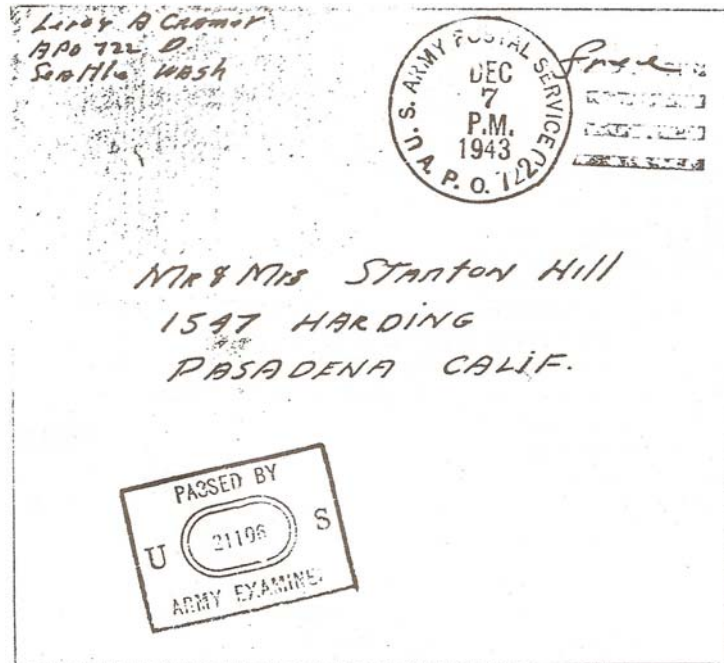 Leroy A Cramer
APO 722 D.
Seattle Wash
free
U. S. ARMY POSTAL SERVICE
DEC
7
P.M.
1943
A. P. O. 722
Mr & Mrs Stanton Hill
1547 HARDING
PASADENA CALIF.
PASSED BY
U 21196 S
ARMY EXAMINER